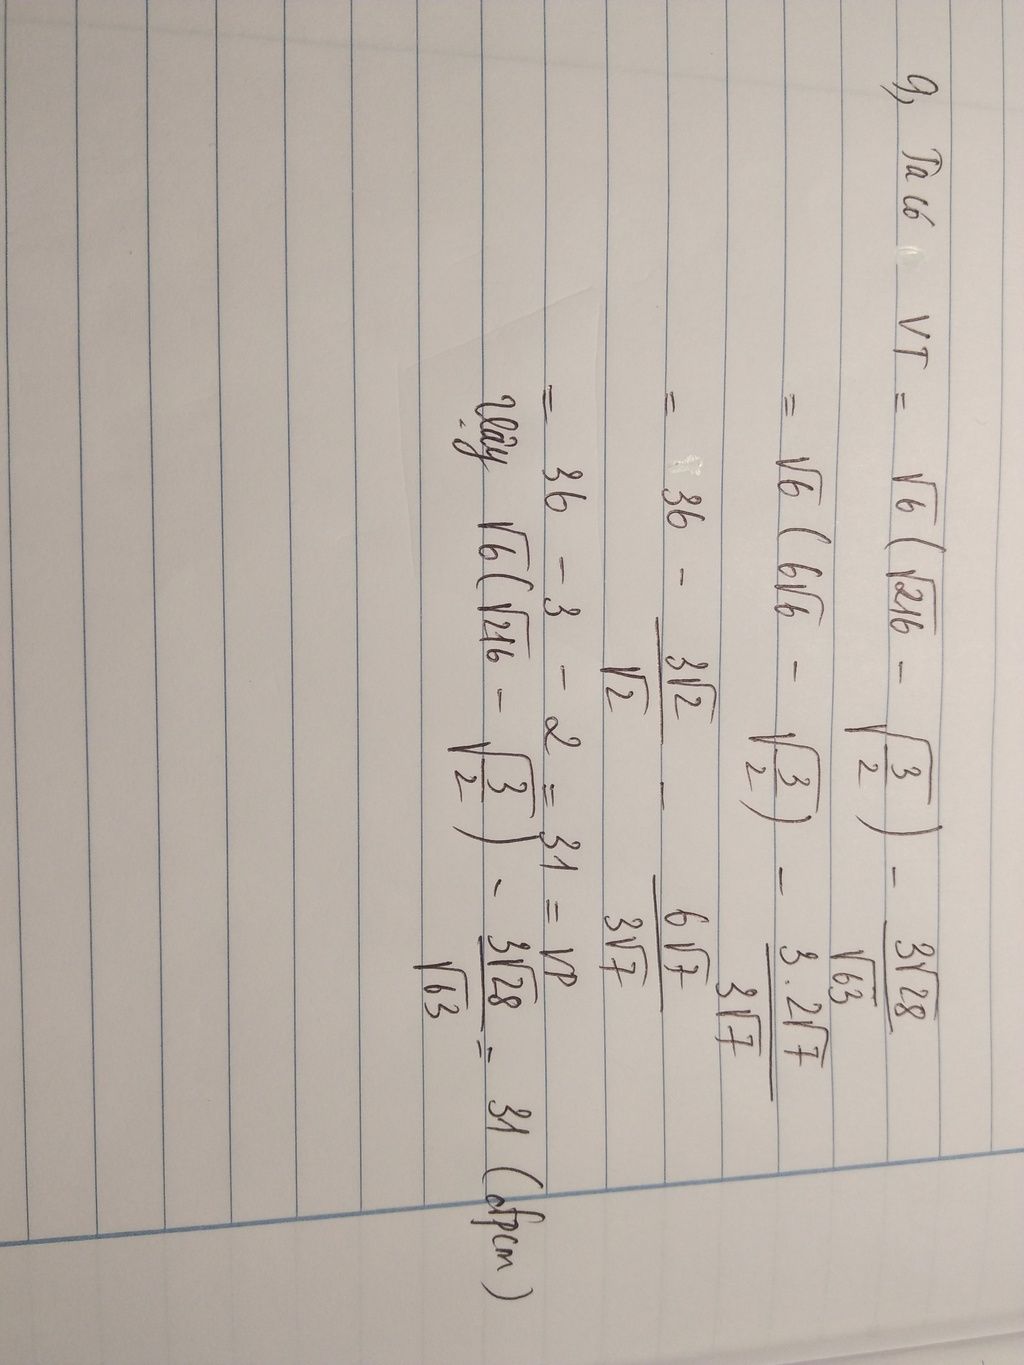 g, Ta có VT = √6(√216 - √(3/2)) - 3√28/√63
= √6(6√6 - √(3/2)) - 3.2√7/3√7
= 36 - 3√2/√2 - 6√7/3√7
= 36 - 3 - 2 = 31 = VP
Vậy √6(√216 - √(3/2)) - 3√28/√63 = 31 (đpcm)